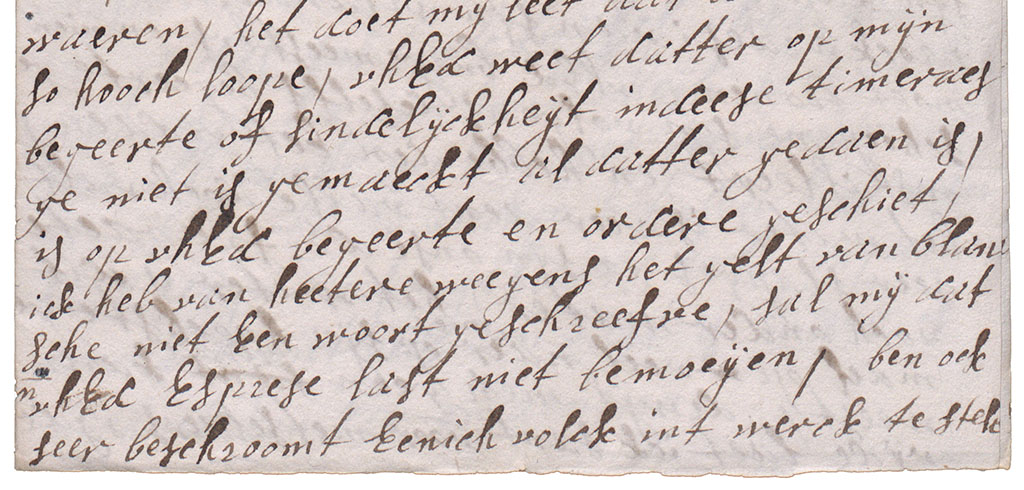 waeren, het doet mij leet dat
so hooch loope, uhEd weet datter op mijn
begeerte of sindelijckheijt indeese timeraes
ge niet is gemaeckt al datter gedaen is,
is op uhEd begeerte en ordere geschiet,
ick heb van heetere weegens het gelt van blan
sche niet Een woort geschreefve, sal mij dat
uhEd Esprese last niet bemoeijen, ben ock
seer beschroomt Eenich volck int werck te stele